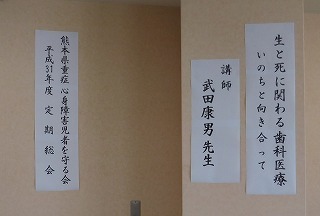 熊本県重症心身障害児者を守る会
平成31年度 定期総会
生と死に関わる歯科医療
いのちと向き合って
講師
武田康男 先生